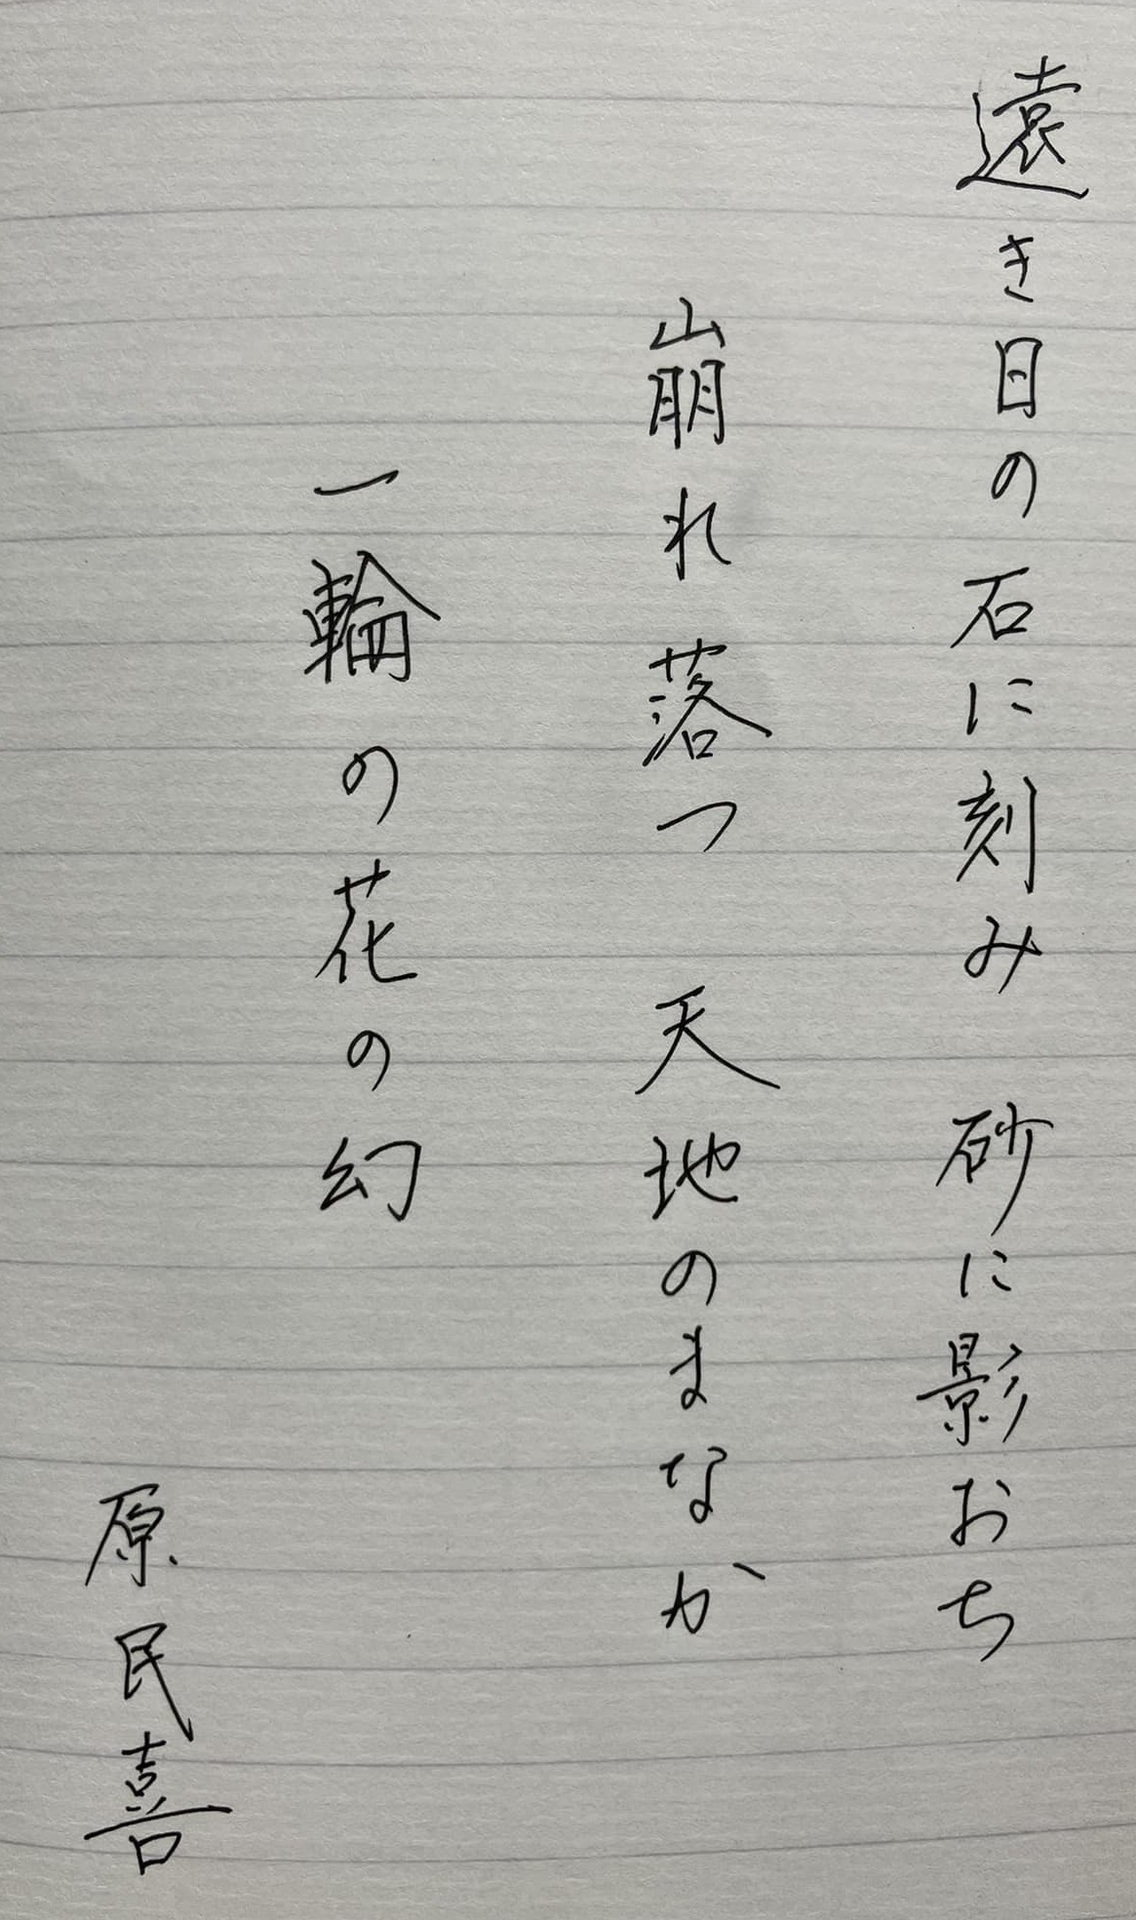 遠き日の石に刻み　砂に影おち
崩れ落つ　天地のまなか
一輪の花の幻
原民喜